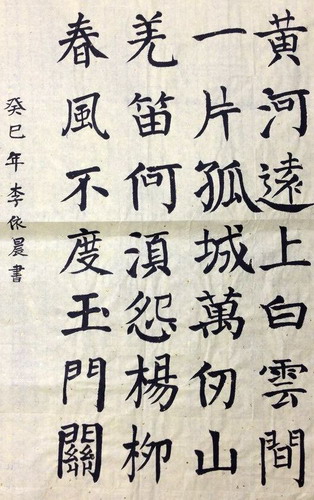 黄河遠上白雲間
一片孤城萬仞山
羌笛何湏怨楊柳
春風不度玉門關
癸巳年李依晨書